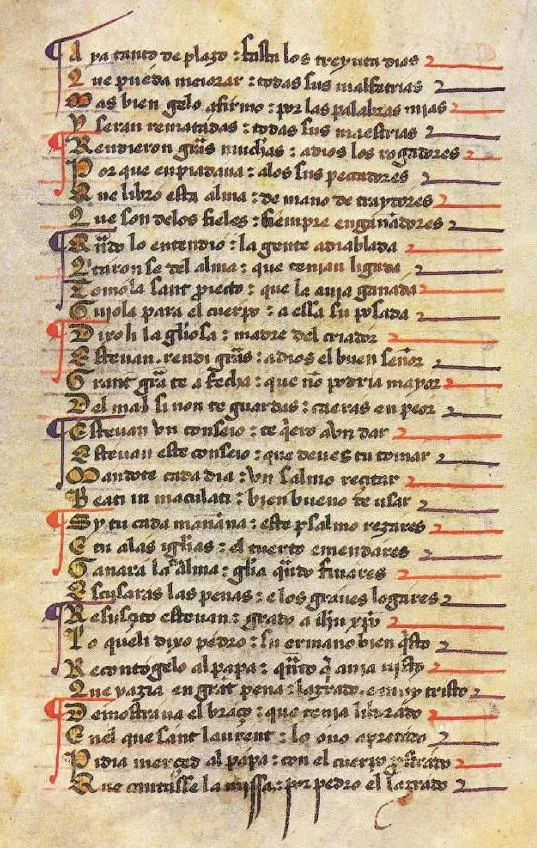 A ya tanto de plaço : fasta los treynta dias
Que pueda meiorar : todas sus malfetrias
Mas bien gelo afirmo : por las palabras mias
Y seran rematadas : todas sus maestrias
Rendieron grãs muchas : adios los rogadores
Por que enpiadaua : alos sus pecadores
Que libro esta alma : de mano de traydores
Que son delos fieles : siempre engañadores
Qñdo lo entendio : la gente adiablada
Quitaron se del alma : que tenian ligada
Tomola sant proiecto : que la auia ganada
Guiola para el cuerpo : a ella su posada
Dixoli la gl̃iosa : madre del criador
Esteuan rendi grãs : adios el buen señor
Grant grã te a fecha : que nõ podria mayor
Del mal si non te guardas : caeras en peor
Esteuan vn conseio : te q̃ero avn dar
Esteuan este conseio : que deues tu tomar
Mandote cada dia : vn salmo recitar
Beati in maculati : bien bueno de usar
Sy tu cada mañana : este psalmo rezares
E tu alas igl̃ias : el tuerto emendares
Ganara la alma : gl̃ia qñdo finares
Escusaras las penas : e los graues logares
Resuscito esteuan : grado a ihũ xp̃o
Lo queli dixo pedro : su ermano bien q̃sto
Recontogelo al papa : qñto q̃ auia uisto
Que yazia en grãt pena : lazrado e muy tristo
Demostraua el braço : que tenia liurado
Enel que sant laurent : lo ouo apretado
Pidia merced al papa : con el cuerpo postrado
Que cantasse la missa : por pedro el lazrado